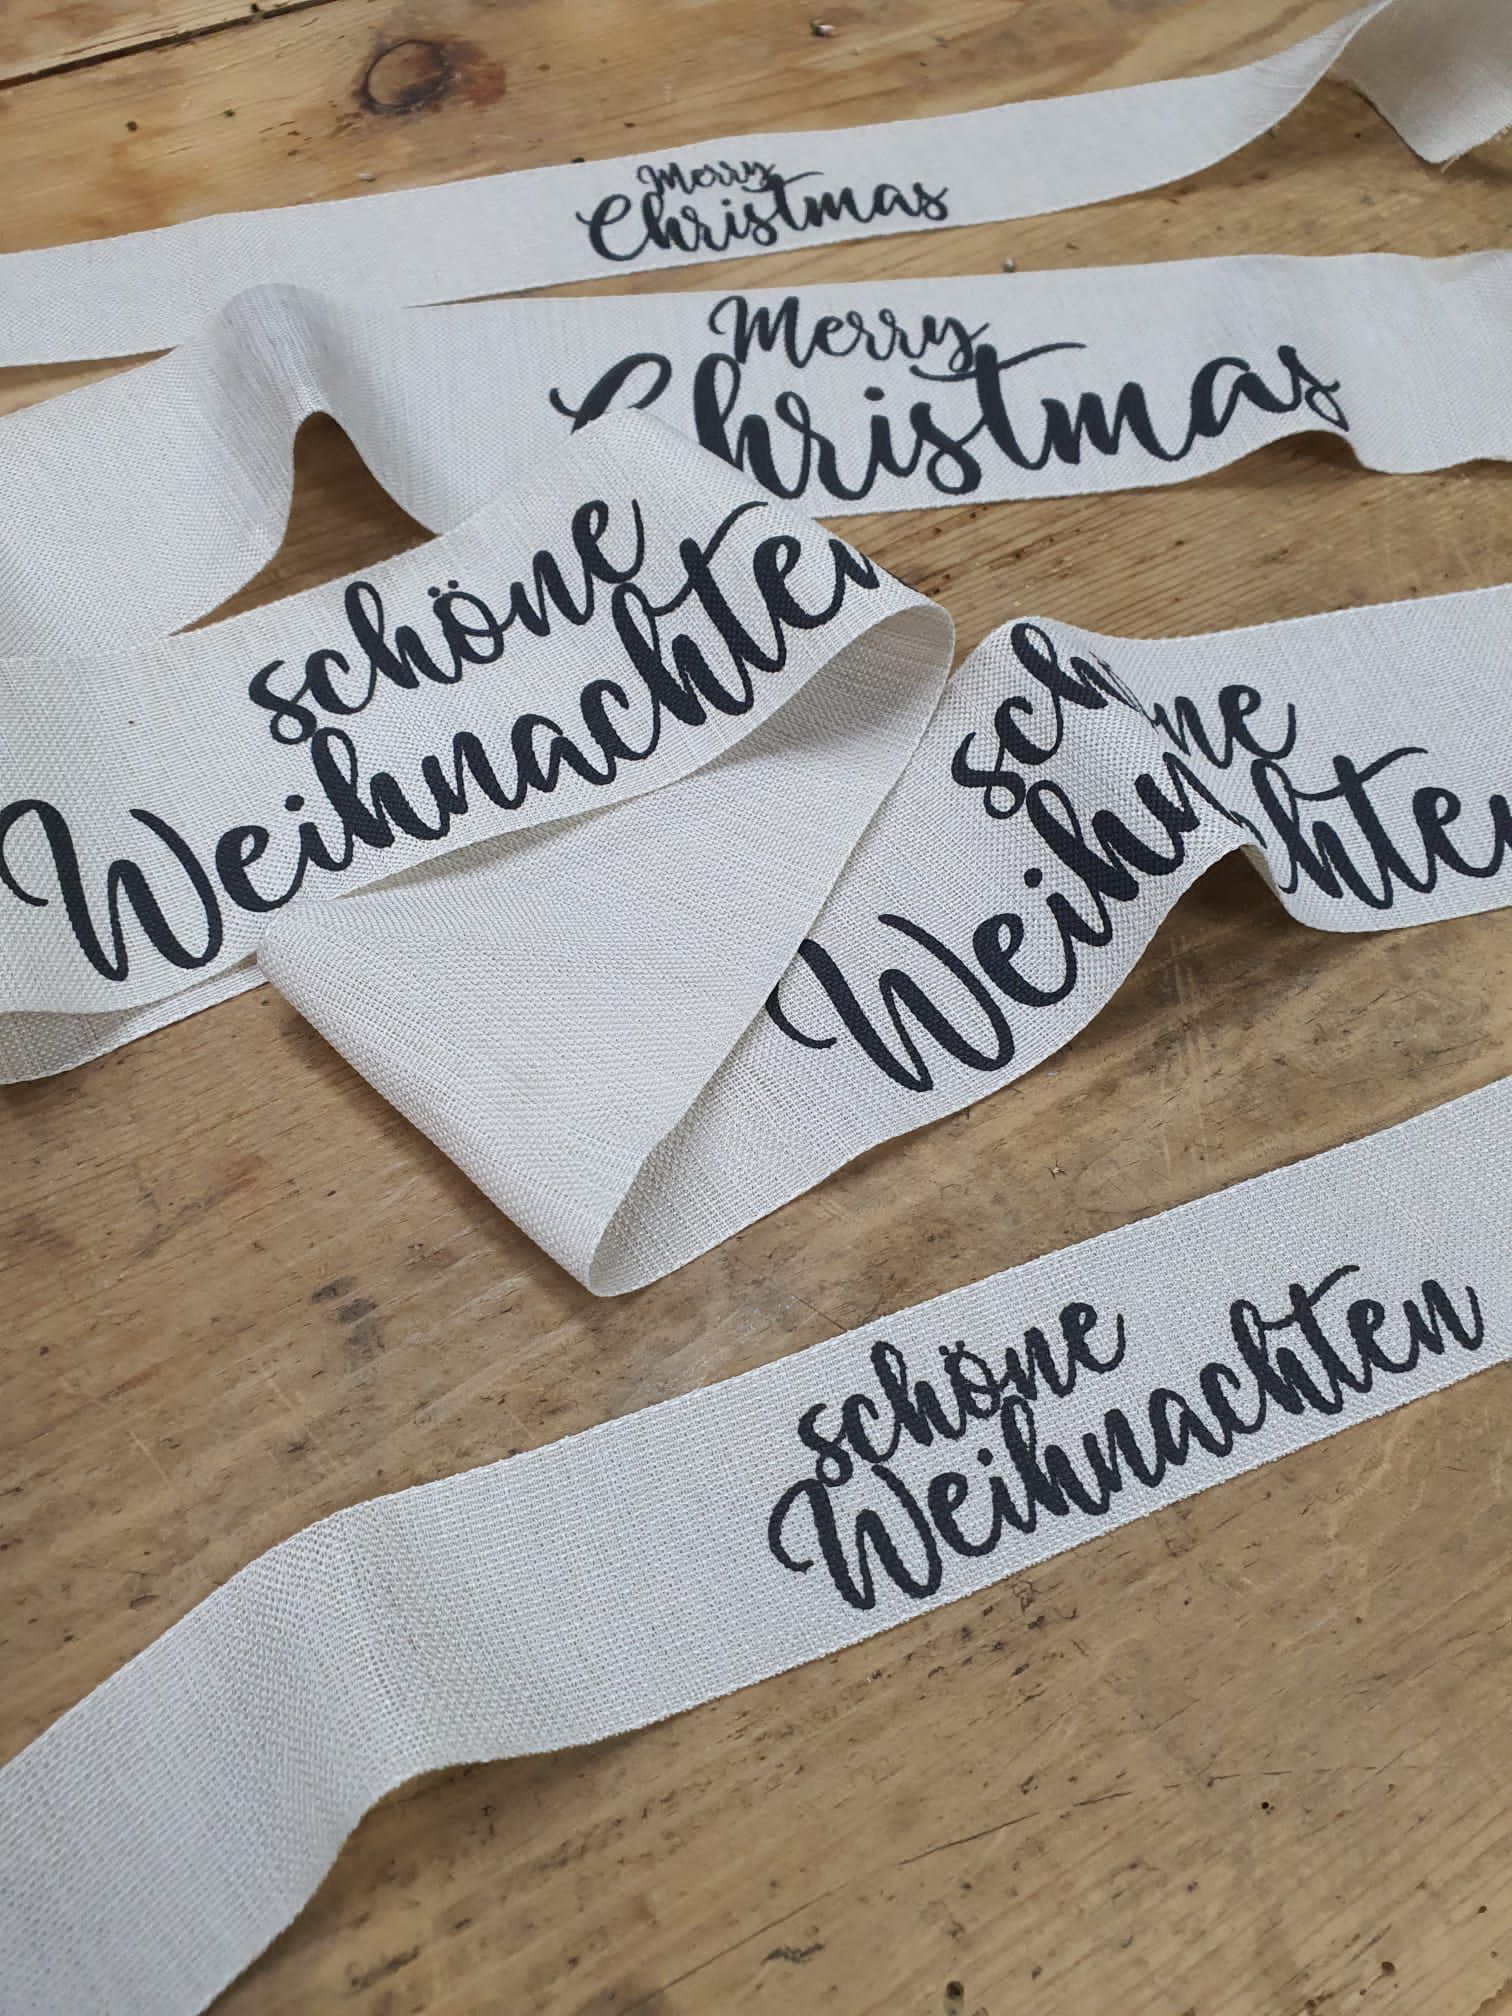 Merry
Christmas
Merry
Christmas
schöne
Weihnachten
schöne
Weihnachten
schöne
Weihnachten